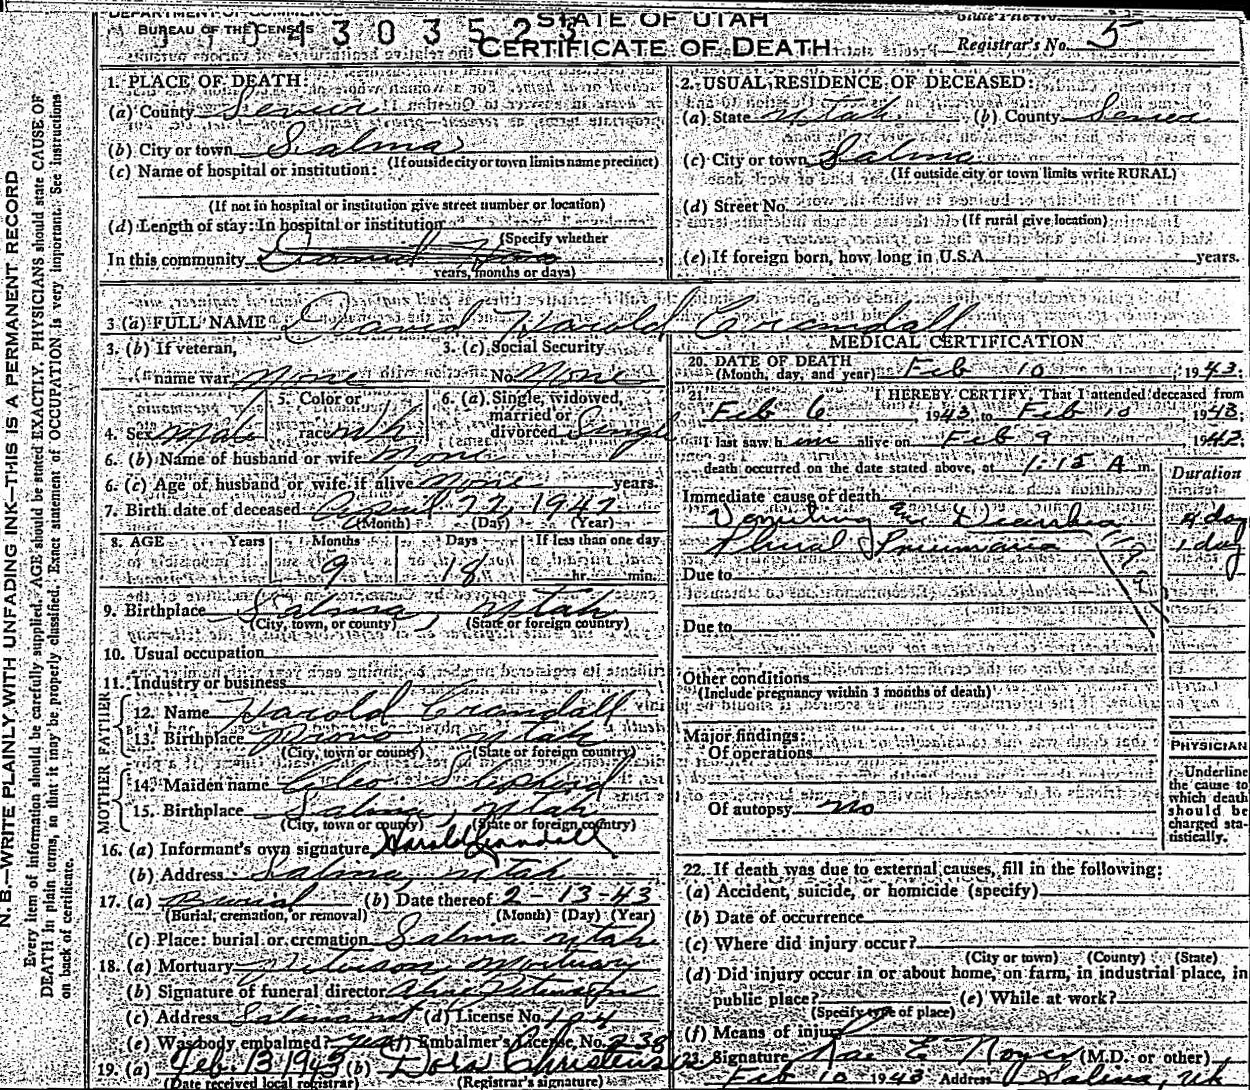 DEPARTMENT OF COMMERCE
BUREAU OF THE CENSUS
STATE OF UTAH
CERTIFICATE OF DEATH
Registrar's No. 5
N. B.—WRITE PLAINLY WITH UNFADING INK—THIS IS A PERMANENT RECORD
Every item of information should be carefully supplied. AGE should be stated EXACTLY. PHYSICIANS should state CAUSE OF
DEATH in plain terms, so that it may be properly classified. Exact statement of OCCUPATION is very important. See instructions
on back of certificate.
1. PLACE OF DEATH:
(a) County Sevier
(b) City or town Salina
(If outside city or town limits name precinct)
(c) Name of hospital or institution:
(If not in hospital or institution give street number or location)
(d) Length of stay: In hospital or institution
(Specify whether
In this community
years, months or days)
2. USUAL RESIDENCE OF DECEASED:
(a) State Utah (b) County Sevier
(c) City or town Salina
(If outside city or town limits write RURAL)
(d) Street No.
(If rural give location)
(e) If foreign born, how long in U.S.A. years.
3 (a) FULL NAME David Harold Crandall
3. (b) If veteran,
name war None
3. (c) Social Security
No. None
4. Sex Male
5. Color or
race Wh
6. (a) Single, widowed,
married or
divorced Single
6. (b) Name of husband or wife None
6. (c) Age of husband or wife if alive None years.
7. Birth date of deceased April 22, 1942
(Month) (Day) (Year)
8. AGE Years Months Days If less than one day
9 18 hr. min.
9. Birthplace Salina, Utah
(City, town, or county) (State or foreign country)
10. Usual occupation
11. Industry or business
FATHER
12. Name Harold Crandall
13. Birthplace Utah
(City, town or county) (State or foreign country)
MOTHER
14. Maiden name Cleo Shepherd
15. Birthplace Salina, Utah
(City, town or county) (State or foreign country)
16. (a) Informant's own signature Harold Crandall
(b) Address Salina, Utah
17. (a) Burial (b) Date thereof 2-13-43
(Burial, cremation, or removal) (Month) (Day) (Year)
(c) Place: burial or cremation Salina Utah
18. (a) Mortuary Peterson Mortuary
(b) Signature of funeral director
(c) Address Salina Ut (d) License No. 104
(e) Was body embalmed? yes (f) Embalmer's License, No. 2-38
19. (a) Feb. 13 1943 (b) Dora Christensen
(Date received local registrar) (Registrar's signature)
MEDICAL CERTIFICATION
20. DATE OF DEATH
(Month, day, and year) Feb 10, 1943.
21. I HEREBY CERTIFY, That I attended deceased from
Feb 6, 1943 to Feb 10 1943.
I last saw him alive on Feb 9 1942.
death occurred on the date stated above, at 1:15 A m.
Duration
Immediate cause of death
Vomiting and Diarrhea 4 day
Plural Pneumonia 1 day
Due to
Due to
Other conditions
(Include pregnancy within 3 months of death)
Major findings:
Of operations
Of autopsy No
PHYSICIAN
Underline
the cause to
which death
should be
charged sta-
tistically.
22. If death was due to external causes, fill in the following:
(a) Accident, suicide, or homicide (specify)
(b) Date of occurrence
(c) Where did injury occur?
(City or town) (County) (State)
(d) Did injury occur in or about home, on farm, in industrial place, in
public place? (e) While at work?
(Specify type of place)
(f) Means of injury
23. Signature Rae E. Noyes (M.D. or other)
Feb 10 1943 Address Salina Ut